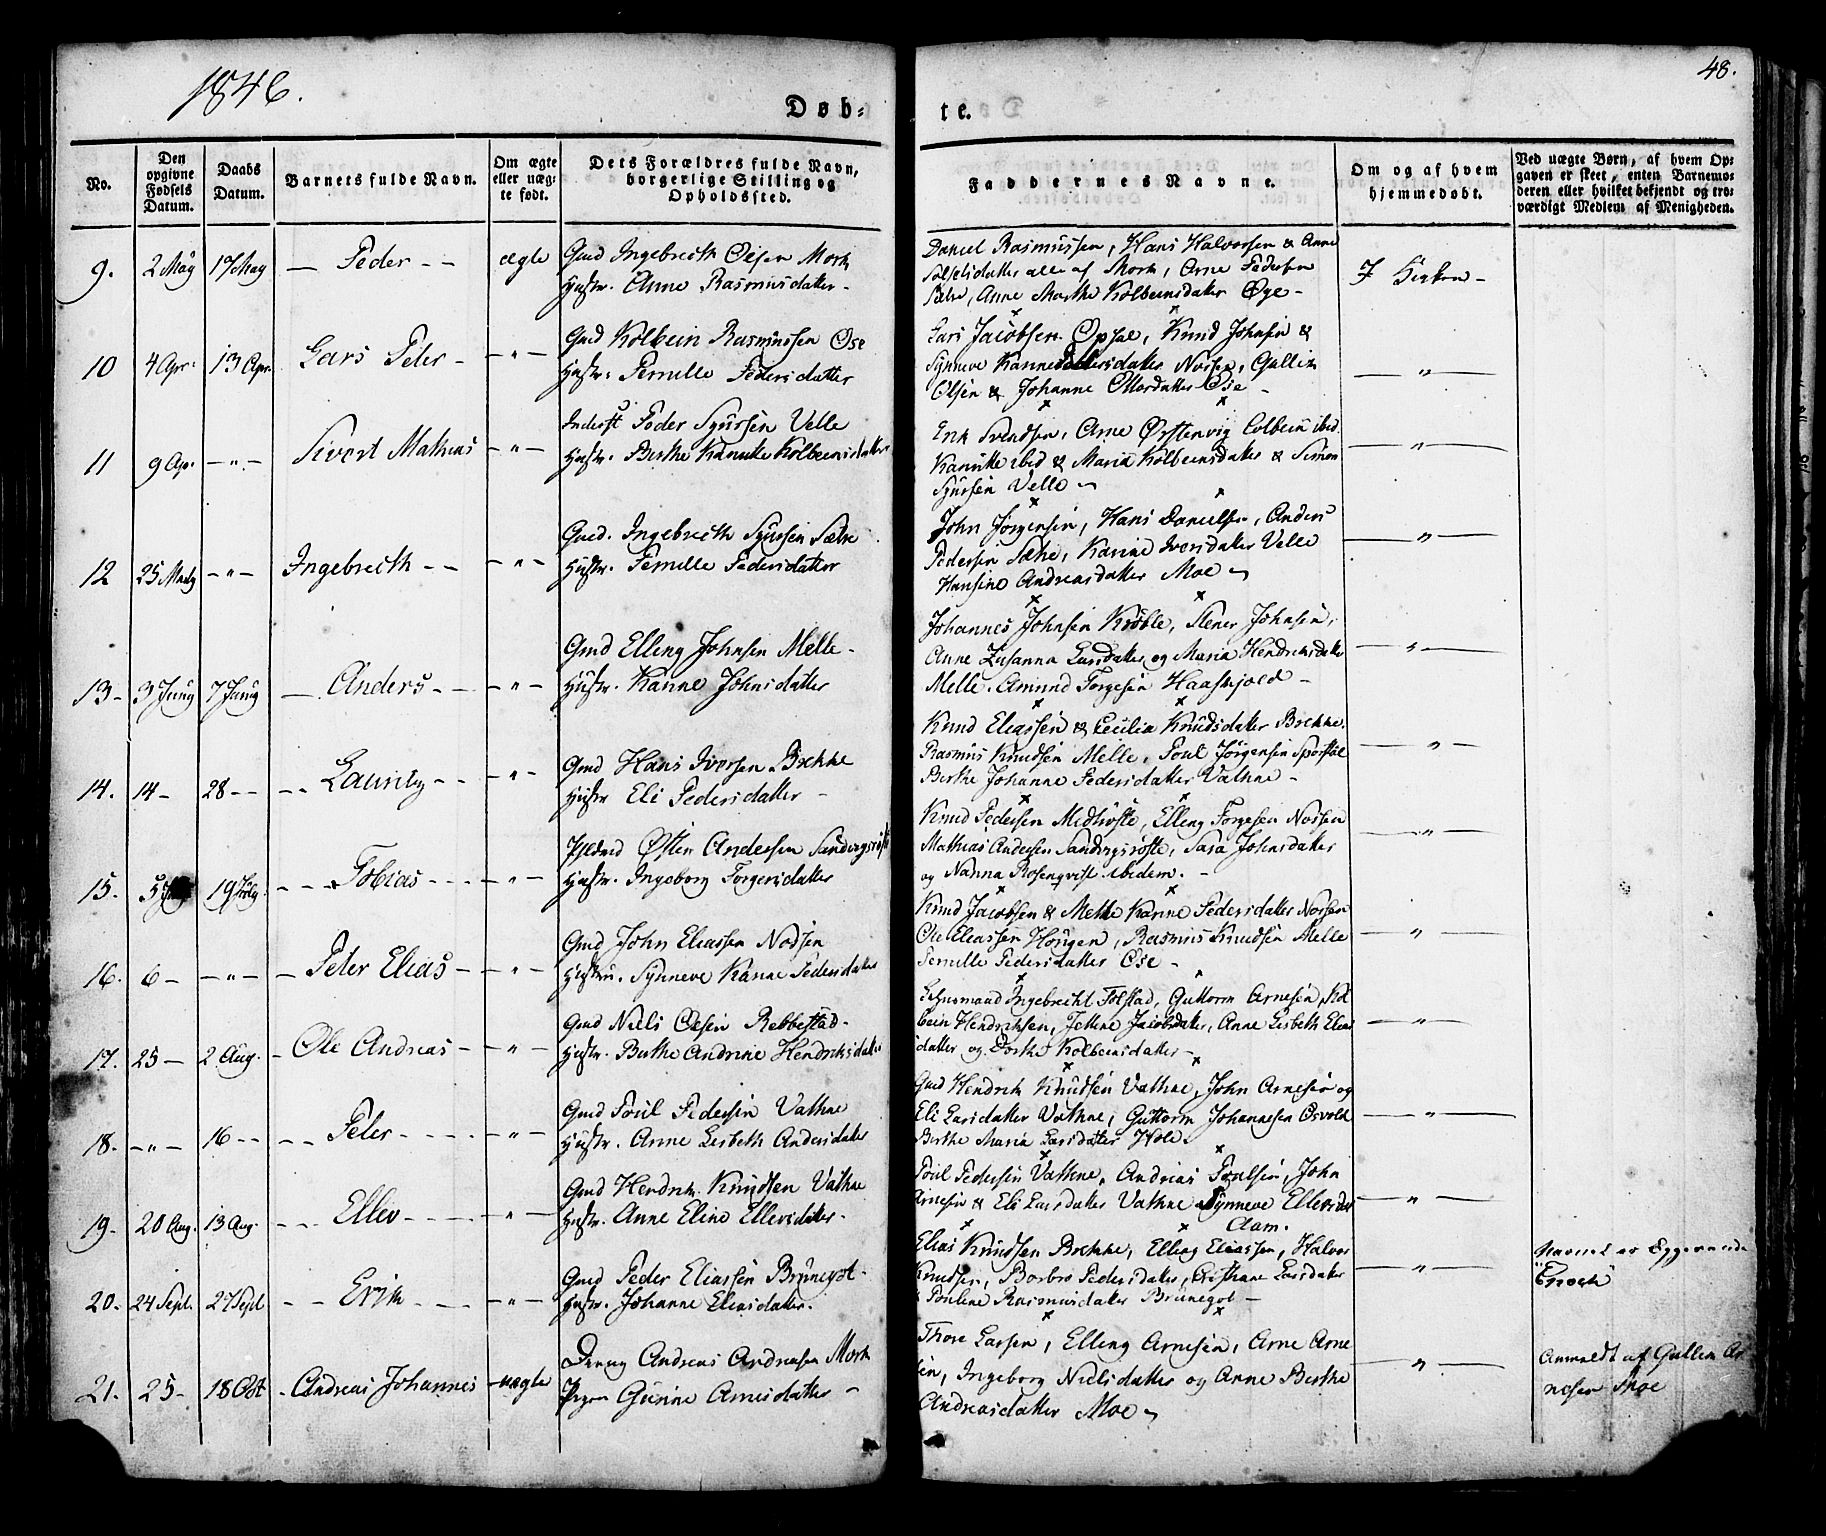 1846.
48.
Døb-
te.
No.
Den opgivne Fødsels Datum.
Daabs Datum.
Barnets fulde Navn.
Om ægte eller uæg-te født.
Dets Forældres fulde Navn, borgerlige Stilling og Opholdssted.
Faddernes Navne.
Om og af hvem hjemmedøbt.
Ved uægte Børn, af hvem Op-
gaven er skeet, enten Barnemo-
deren eller hvilket bekjendt og tro-
værdigt Medlem af Menigheden.
9. 2 May 17 May — Peder — — ægte
Gmd Ingebrecth Olsen Mork
Hustr. Anne Rasmusdatter -
Daniel Rasmussen, Hans Halvorsen & Anne
alle af Mork, Arne Pedersen
Sætre, Anne Marthe Kolbeensdatter Øye -
I Kirken -
10 4 Apr: 13 Apr. Lars Peter - — " —
Gmd Kolbein Rasmussen Øse
Hustr. Pernille Pedersdatter
Lars Jacobsen Opsal, Knud Johnsen &
Synneve Kanne Pedersdatter Nossen, Gullik
Olsen & Johanne Olsdatter Øse -
— " —
11 9 Apr. — " — Sivert Mathias — " —
Inderst Peder Sjursen Velle
Hustr. Berthe Kanutte Kolbeensdatter
Erik Svendsen, Arne Ørstenvig Colbein ibid
Kanutte ibid & Maria Kolbeensdatter & Simon
Sjursen Velle
— " —
12 25 Marty — " — Ingebrecth — — — " —
Gmd. Ingebrecth Sjursen Sætre
Hustr. Pernille Pedersdatter
John Jørgensen, Hans Danielsen, Anders
Pedersen Sætre, Karine Iversdatter Velle
Hansine Andreasdatter Moe
— " —
13 - 3 Juny 7 Juny — Anders — — — " —
Gmd Elling Johnsen Melle -
Hustr. Kanne Johnsdatter
Johannes Johnsen Krøble, Stener Johnsen,
Anne Zusanna Larsdatter og Maria Hendriksdatter
Melle. Amund Torgesen Haaskjold -
— " —
14. 14 - 28 - - — Lauritz — — — " —
Gmd Hans Iversen Brekke
Hustr Eli Pedersdatter -
Knud Eliassen & Cecilia Knudsdatter Brekke,
Rasmus Knudsen Melle, Poul Jørgensen
Berthe Johanne Pedersdatter Vatne -
— " —
15. 5 July 19 July - — Tobias — — " —
Østen Andersen Sandvigsrøste
Hustr. Ingeborg Torgersdatter
Knud Pedersen Midtrøste, Elling Torgesen Nossen
Mathias Andersen Sandvigsrøste, Sara Johnsdatter
og Nanna Rosenqvist ibidem. -
— " —
16. 6 - — " — - Peter Elias - — " —
Gmd John Eliassen Nossen
Hustru. Synneve Kanne Pedersdatter
Knud Jacobsen & Mette Kanne Pedersdatter Nossen
Ole Eliassen Hougen, Rasmus Knudsen Melle
Pernille Pedersdatter Øse -
— " —
17. 25 - 2 Aug. - Ole Andreas - — " —
Gmd Niels Olsen Rebbestad -
Hustr. Berthe Andrine Hendriksdatter
Lehnsmand Ingebrecht Folstad, Guttorm Arnesen, Kol
bein Hendriksen, Jettine Jacobsdatter, Anne Lisbeth Elias
datter og Dorthe Kolbeensdatter -
— " —
18. - " - 16 - - - - Peter - - - — " —
Gmd Poul Pedersen Vathne
Hustr. Anne Lisbeth Andersdatter
Gmd Hendrik Knudsen Vathne, John Arnesen og
Eli Larsdatter Vathne, Guttorm Johannesen Osvold
Berthe Maria Larsdatter Hole.
— " —
19. 20 Aug. 13 Aug. - - Ellev - - - — " —
Gmd Hendrik Knudsen Vathne
Hustr. Anne Eline Ellevsdatter -
Poul Pedersen Vathne, Andreas Poulsen, John
Arnesen & Eli Larsdatter Vathne Synneve Ellevsdat
Aam.
— " —
20. 24 Sept. 27 Sept - - Erik - - - — " —
Gmd Peder Eliassen Brunegot -
Hustr. Johanne Eliasdatter.
Elias Knudsen Brekke, Elling Eliassen, Halvor
Knudsen, Barbro Pedersdatter, Larsdatter
Pouline Rasmusdatter Brunegot -
— " —
Navnet er
"Enoch"
21. 25 - 18 Oct - Andreas Johannes - uægte
Dreng Andreas Andreasen Mork
Pigen Gurine Arnesdatter -
Thore Larsen, Elling Arnesen, Arne Arne
sen, Ingeborg Nielsdatter og Anne Berthe
Andreasdatter Moe
— " —
Anmeldt af Gullik Ar
nesen Moe